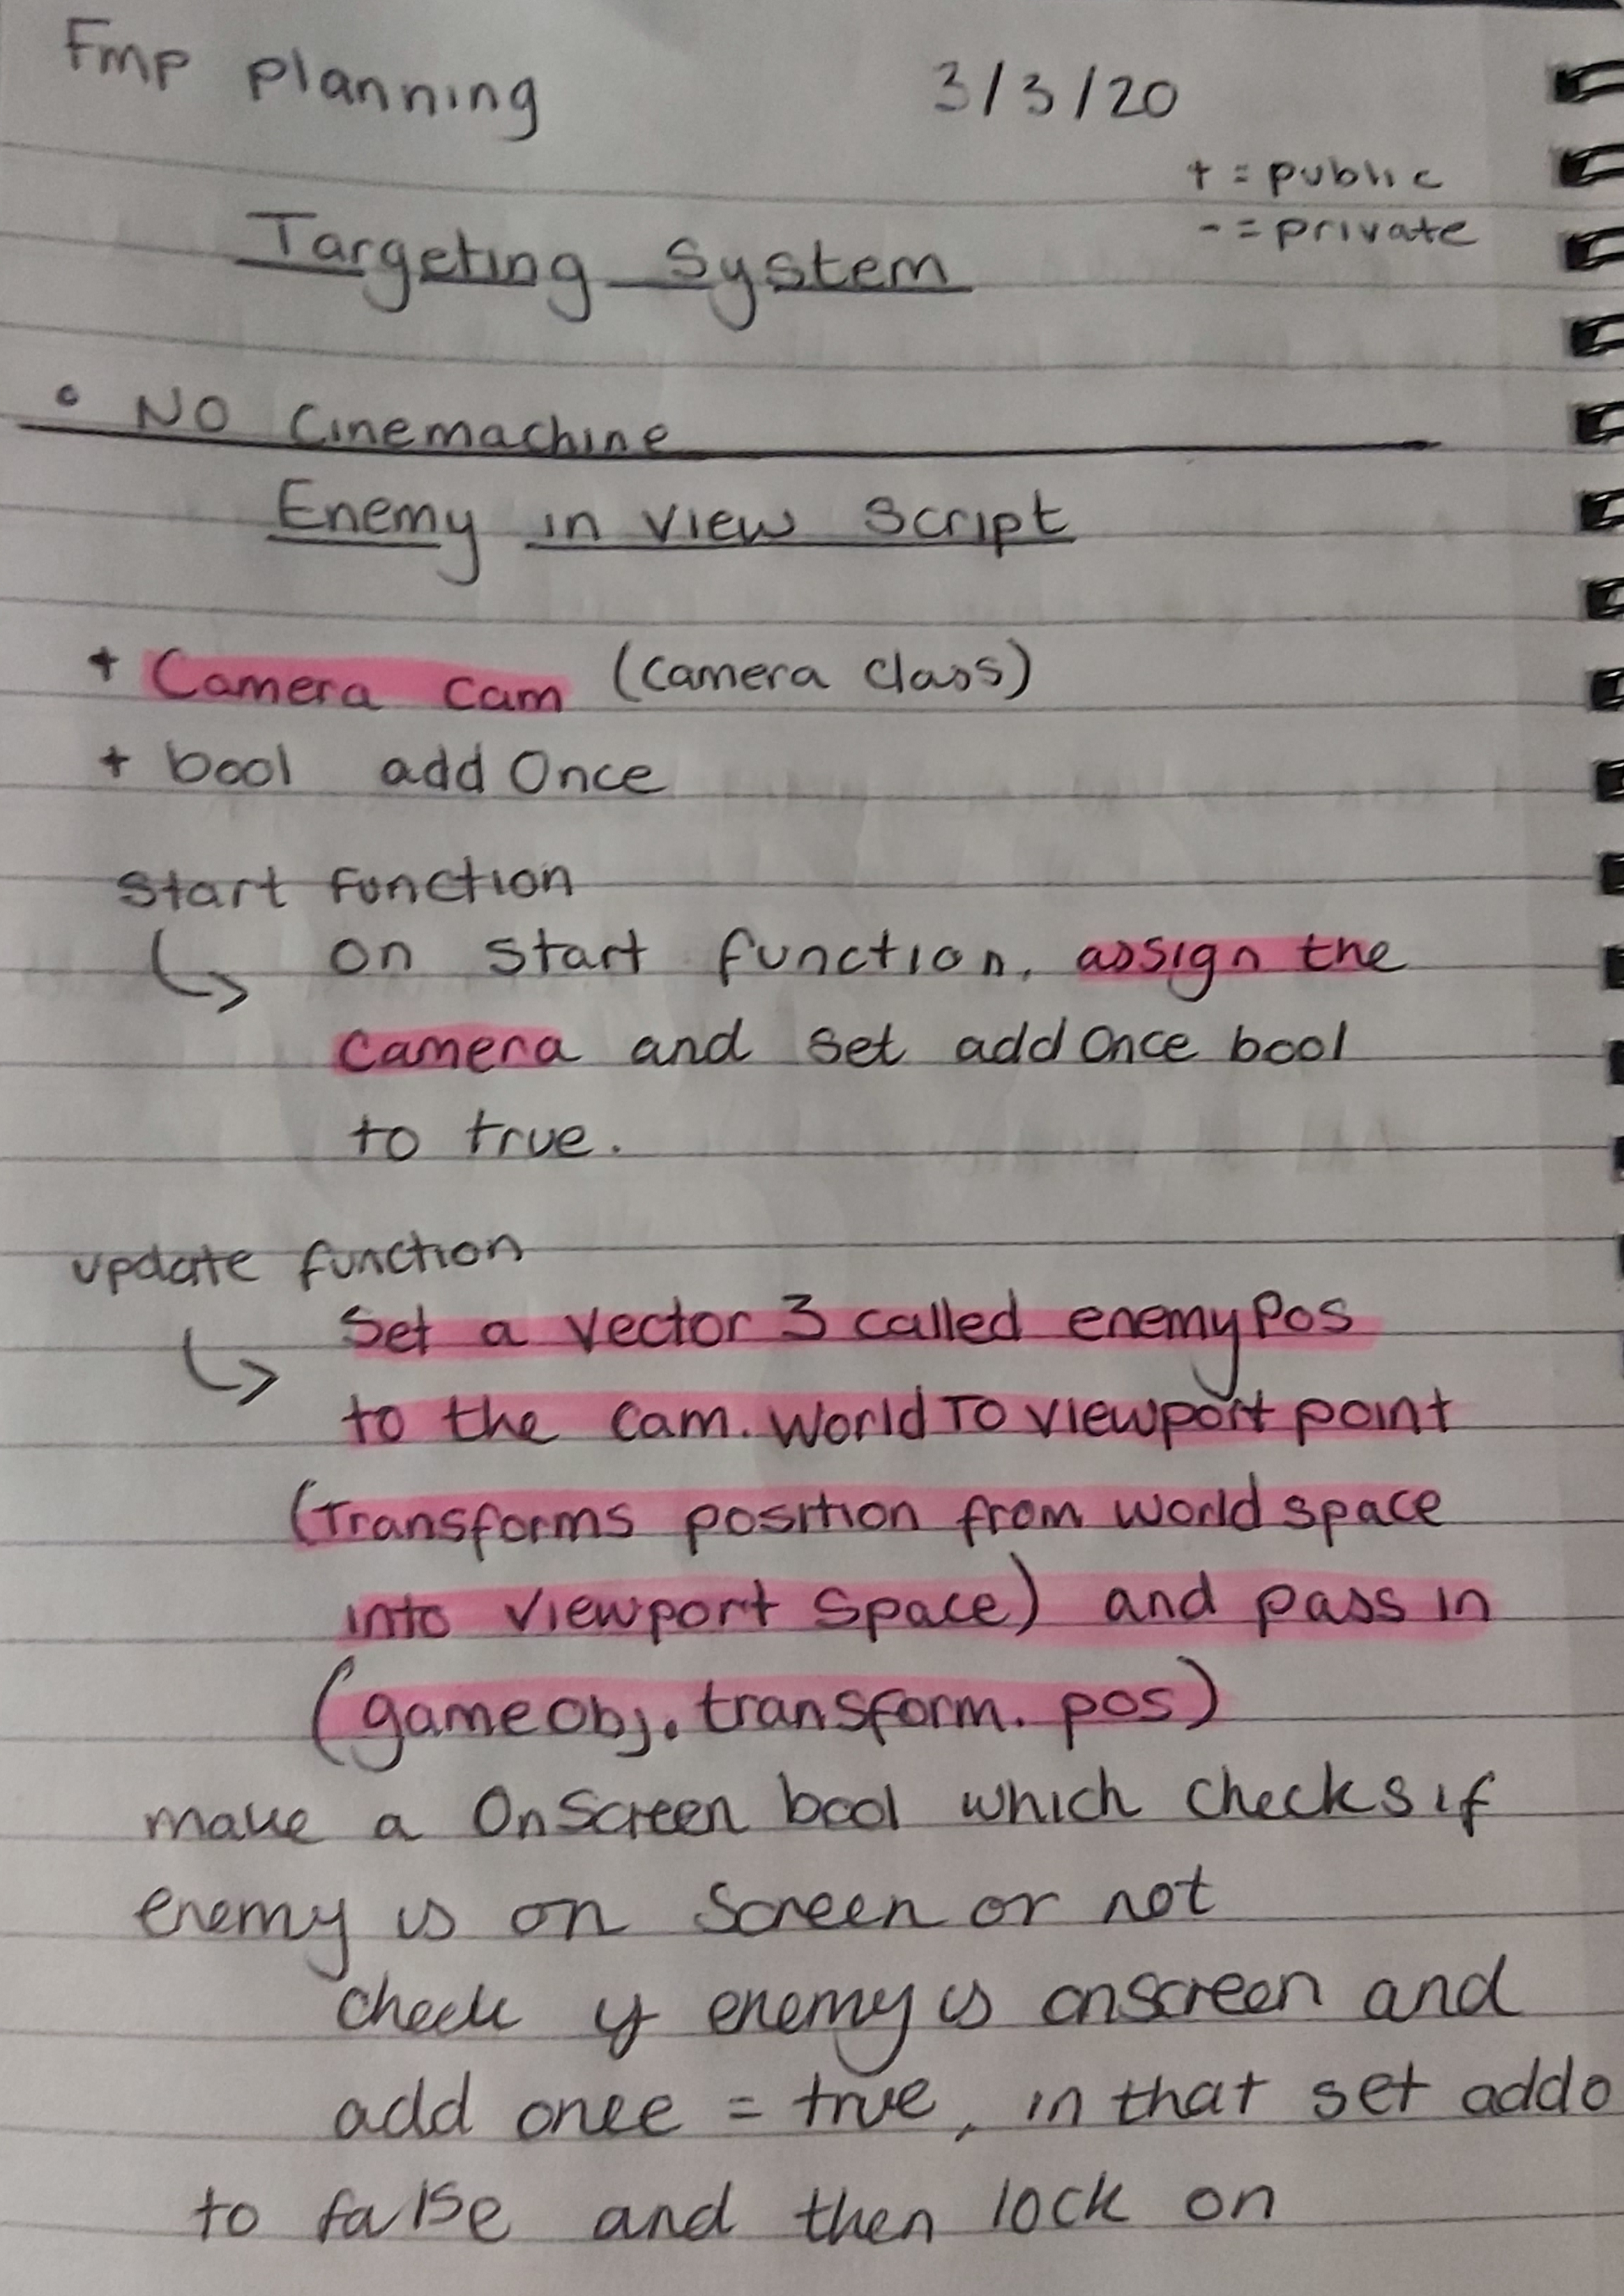 Fmp planning 3/3/20
+ = public
- = private
Targeting System
• NO Cinemachine
Enemy in view script
+ Camera cam (camera class)
+ bool addOnce
start function
on start function, assign the
camera and set addOnce bool
to true.
update function
Set a vector 3 called enemyPos
to the cam.WorldToViewport point
(Transforms position from world space
into viewport space) and pass in
(gameobj.transform.pos)
make a OnScreen bool which checks if
enemy is on screen or not
check if enemy is onscreen and
add once = true, in that set addo
to false and then lock on